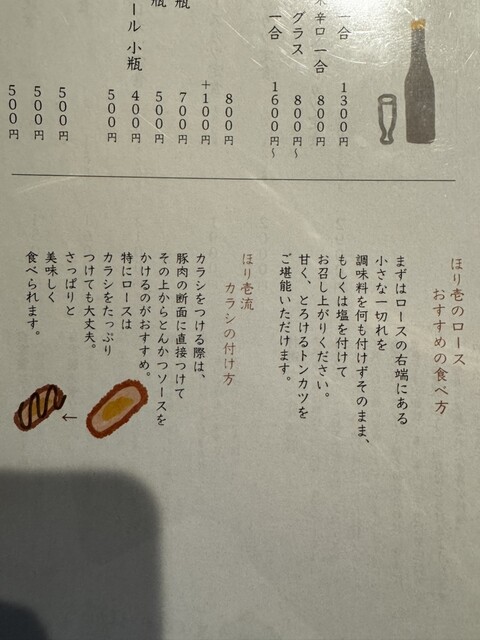 一合 1300円
辛口 一合 800円
グラス 800円〜
一合 1600円〜
800円
+100円
瓶 700円
瓶 500円
ール 小瓶 400円
500円
500円
500円
500円
ほり壱のロース
おすすめの食べ方
まずはロースの右端にある
小さな一切れを
調味料を何も付けずそのまま、
もしくは塩を付けて
お召し上がりください。
甘く、とろけるトンカツを
ご堪能いただけます。
ほり壱流
カラシの付け方
カラシをつける際は、
豚肉の断面に直接つけて
その上からとんかつソースを
かけるのがおすすめ。
特にロースは
カラシをたっぷり
つけても大丈夫。
さっぱりと
美味しく
食べられます。
←